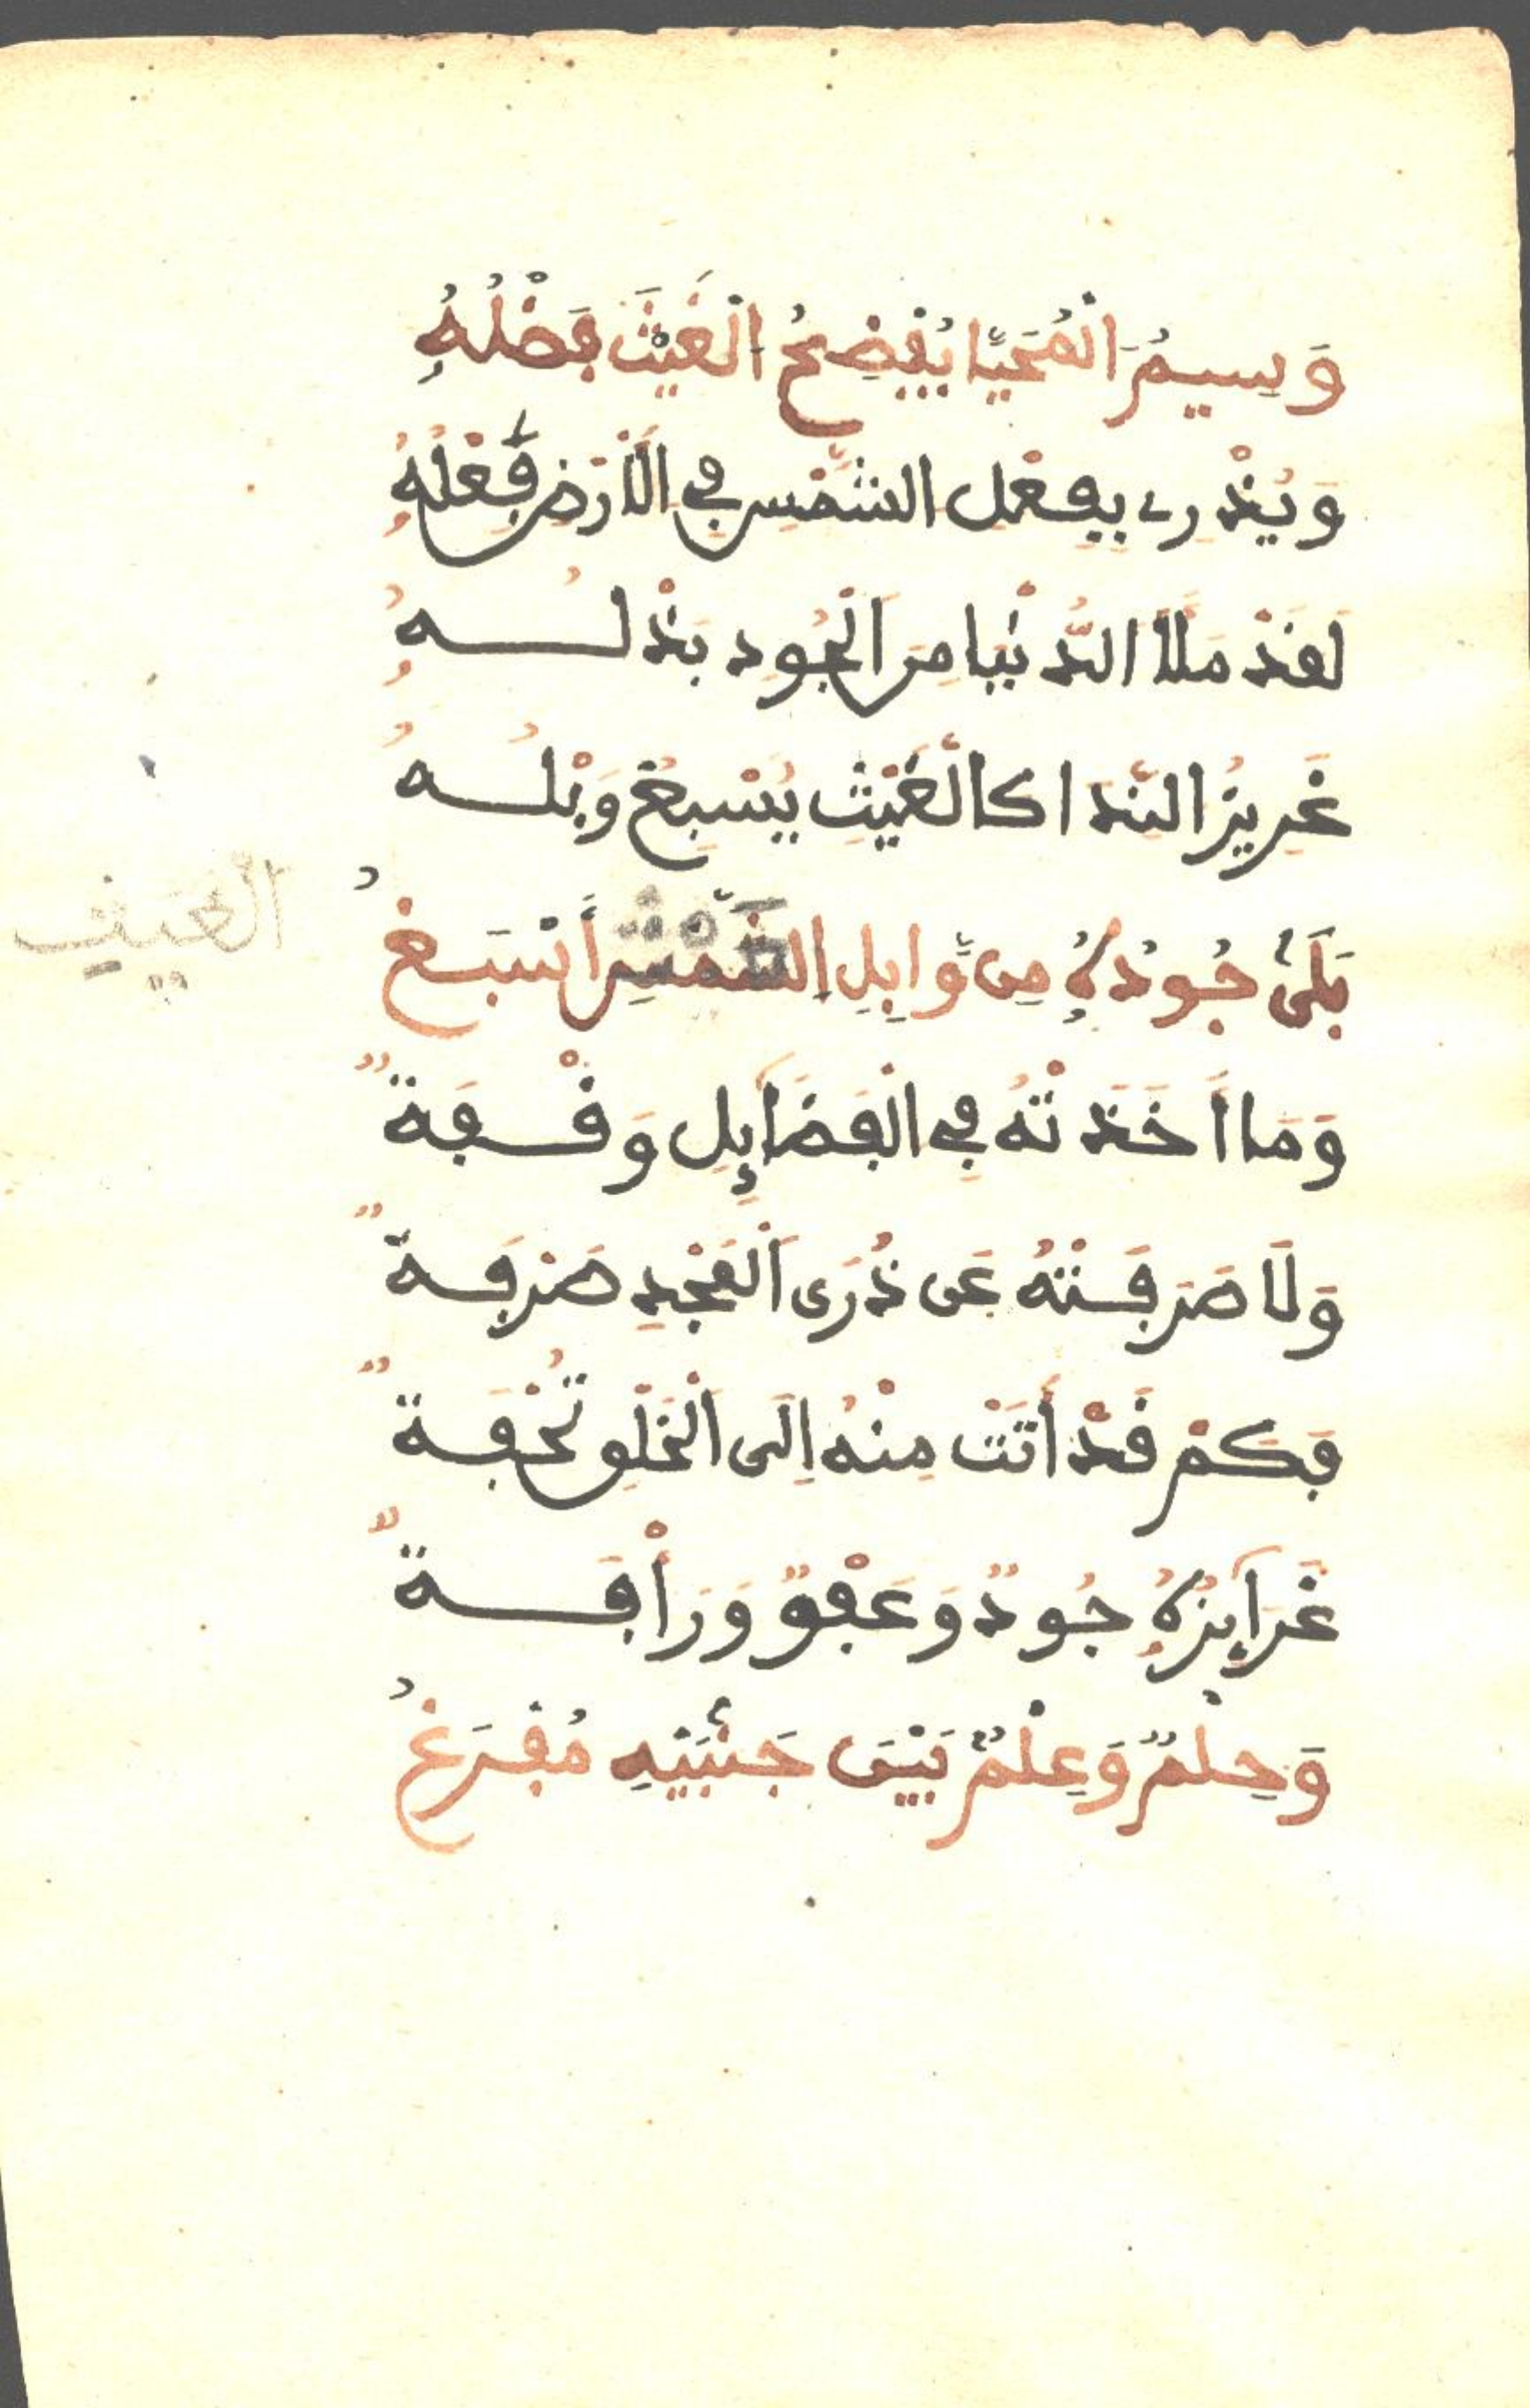 وَسِيمُ الْمُحَيَّا يُفْضِحُ الْغَيْثَ فَضْلُهُ
وَيُذْرِي بِفِعْلِ الشَّمْسِ فِي الْأَرْضِ فِعْلُهُ
لَقَدْ مَلَأَ الدُّنْيَا مِنَ الْجُودِ بَذْلُهُ
غَزِيرُ النَّدَا كَالْغَيْثِ يُسْبِغُ وَبْلُهُ
بَلَى جُودُهُ مِن وَّابِلِ الشَّمْسِ أَسْبَغُ
الْغَيْثِ
وَمَا أَخَذَتْهُ فِي الْفَضَائِلِ وَقْفَةٌ
وَلَا صَرَفَتْهُ عَن ذُرَى الْمَجْدِ صَرْفَةٌ
فَكَمْ قَدْ أَتَتْ مِنْهُ إِلَى الْخَلْقِ تُحْفَةٌ
غَرَائِزُهُ جُودٌ وَعَفْوٌ وَرَأْفَةٌ
وَحِلْمٌ وَعِلْمٌ بَيْنَ جَنْبَيْهِ مُفْرَغُ